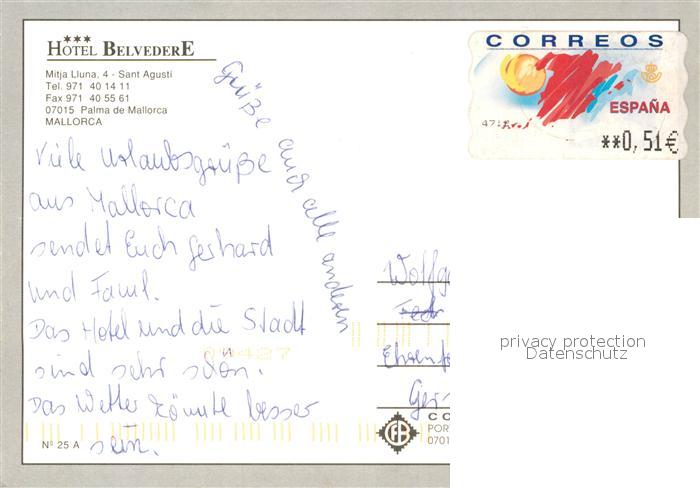 ★★★
HOTEL BELVEDERE
Mitja Lluna, 4 - Sant Agustí
Tel. 971 40 14 11
Fax 971 40 55 61
07015 Palma de Mallorca
MALLORCA
Viele Urlaubsgrüße
aus Mallorca
sendet Euch Gerhard
und Faml.
Das Hotel und die Stadt
sind sehr schön.
Das Wetter könnte besser
sein.
Grüße auch alle anderen
Nº 25 A
CORREOS
ESPAÑA
**0,51€
Wolfg
Ehrenf
Ger
privacy protection
Datenschutz
CO
POR
0701